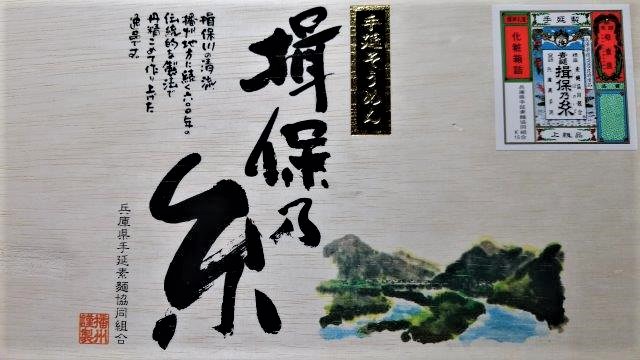 手延そうめん
揖保乃糸
揖保川の清流
播州地方に続く六〇〇年の
伝統的な製法で
丹精こめて作り上げた
逸品です。
兵庫県手延素麵協同組合
播州
謹製
手延製
化粧箱詰
揖保乃糸
上級品
兵庫県手延素麵協同組合